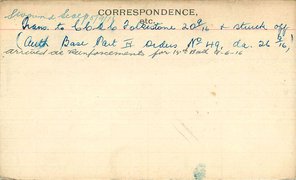 CORRESPONDENCE,
etc.
Trans. to C.C.A.C. Folkestone 20/5/16 & struck off
(Auth Base Part II Orders No 49, da. 21/5/16)
arrived as Reinforcements for 1st Bad 4-6-16